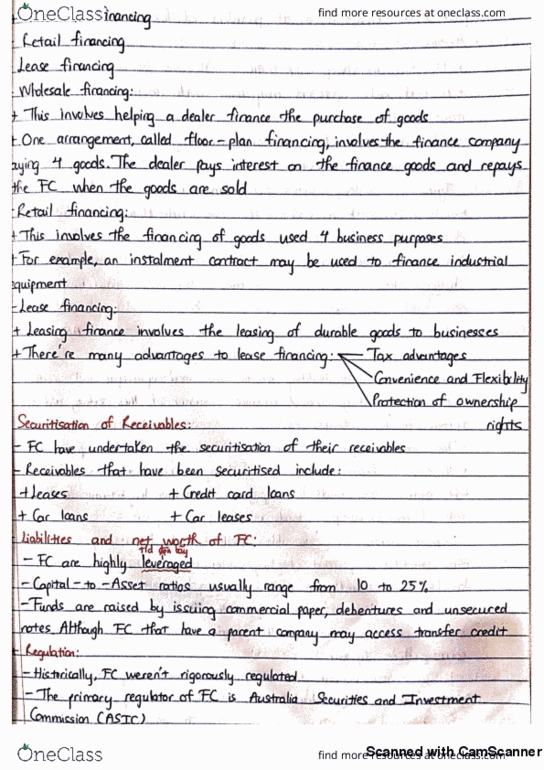 OneClass find more resources at oneclass.com
financing
- Retail financing
- Lease financing
- Wholesale financing:
+ This involves helping a dealer finance the purchase of goods
+ One arrangement, called floor-plan financing, involves the finance company
aying 4 goods. The dealer pays interest on the finance goods and repays
the FC when the goods are sold
- Retail financing:
+ This involves the financing of goods used 4 business purposes
+ For example, an instalment contract may be used to finance industrial
equipment
- Lease financing:
+ Leasing finance involves the leasing of durable goods to businesses
+ There're many advantages to lease financing: Tax advantages
Convenience and Flexibility
Protection of ownership
rights
Securitisation of Receivables:
- FC have undertaken the securitisation of their receivables
- Receivables that have been securitised include:
+ Leases + Credit card loans
+ Car loans + Car leases
Liabilities and net worth of FC:
- FC are highly leveraged
- Capital-to-Asset ratios usually range from 10 to 25%
- Funds are raised by issuing commercial paper, debentures and unsecured
notes. Although FC that have a parent company may access transfer credit
Regulation:
- Historically, FC weren't rigorously regulated
- The primary regulator of FC is Australia Securities and Investment
Commission (ASIC)
OneClass find more resources at oneclass.com
Scanned with CamScanner